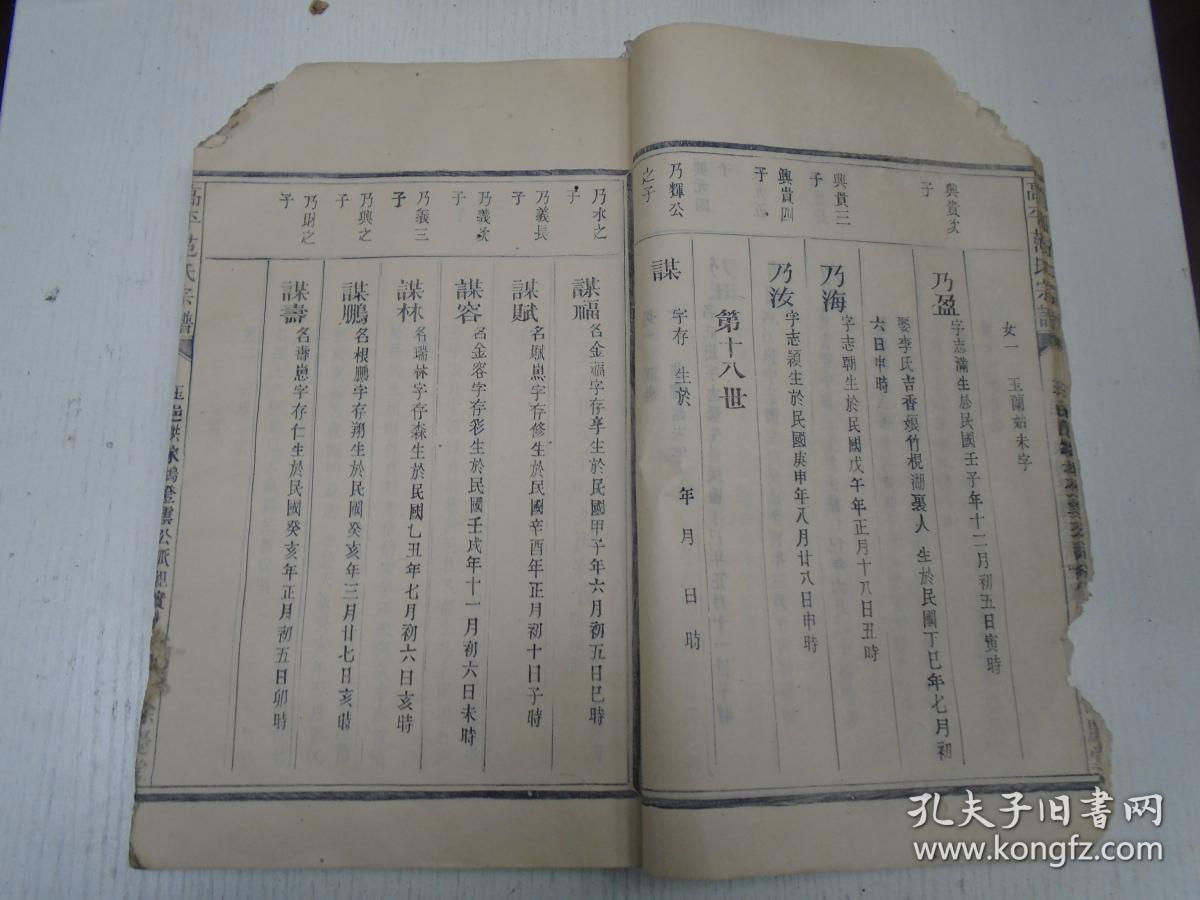 女一 玉蘭姑未字
興貴次子
乃盈 字志滿生於民國壬子年十二月初五日寅時
娶李氏吉香娘竹梘湖裏人 生於民國丁巳年七月初
六日申時
興貴三子
乃海 字志朝生於民國戊午年正月十八日丑時
興貴四子
乃汝 字志潁生於民國庚申年八月廿八日申時
第十八世
乃輝公之子
謀 字存 生於 年 月 日 時
乃水之子
謀福 名金福字存享生於民國甲子年六月初五日巳時
乃義長子
謀賦 名賦崽字存修生於民國辛酉年正月初十日子時
乃義次子
謀容 名金容字存彩生於民國壬戌年十一月初六日未時
乃義三子
謀林 名瑞林字存森生於民國乙丑年七月初六日亥時
乃興之子
謀鵬 名根鵬字存翔生於民國癸亥年三月廿七日亥時
乃財之子
謀壽 名壽崽字存仁生於民國癸亥年正月初五日卯時
氏宗譜
孔夫子旧书网
www.kongfz.com